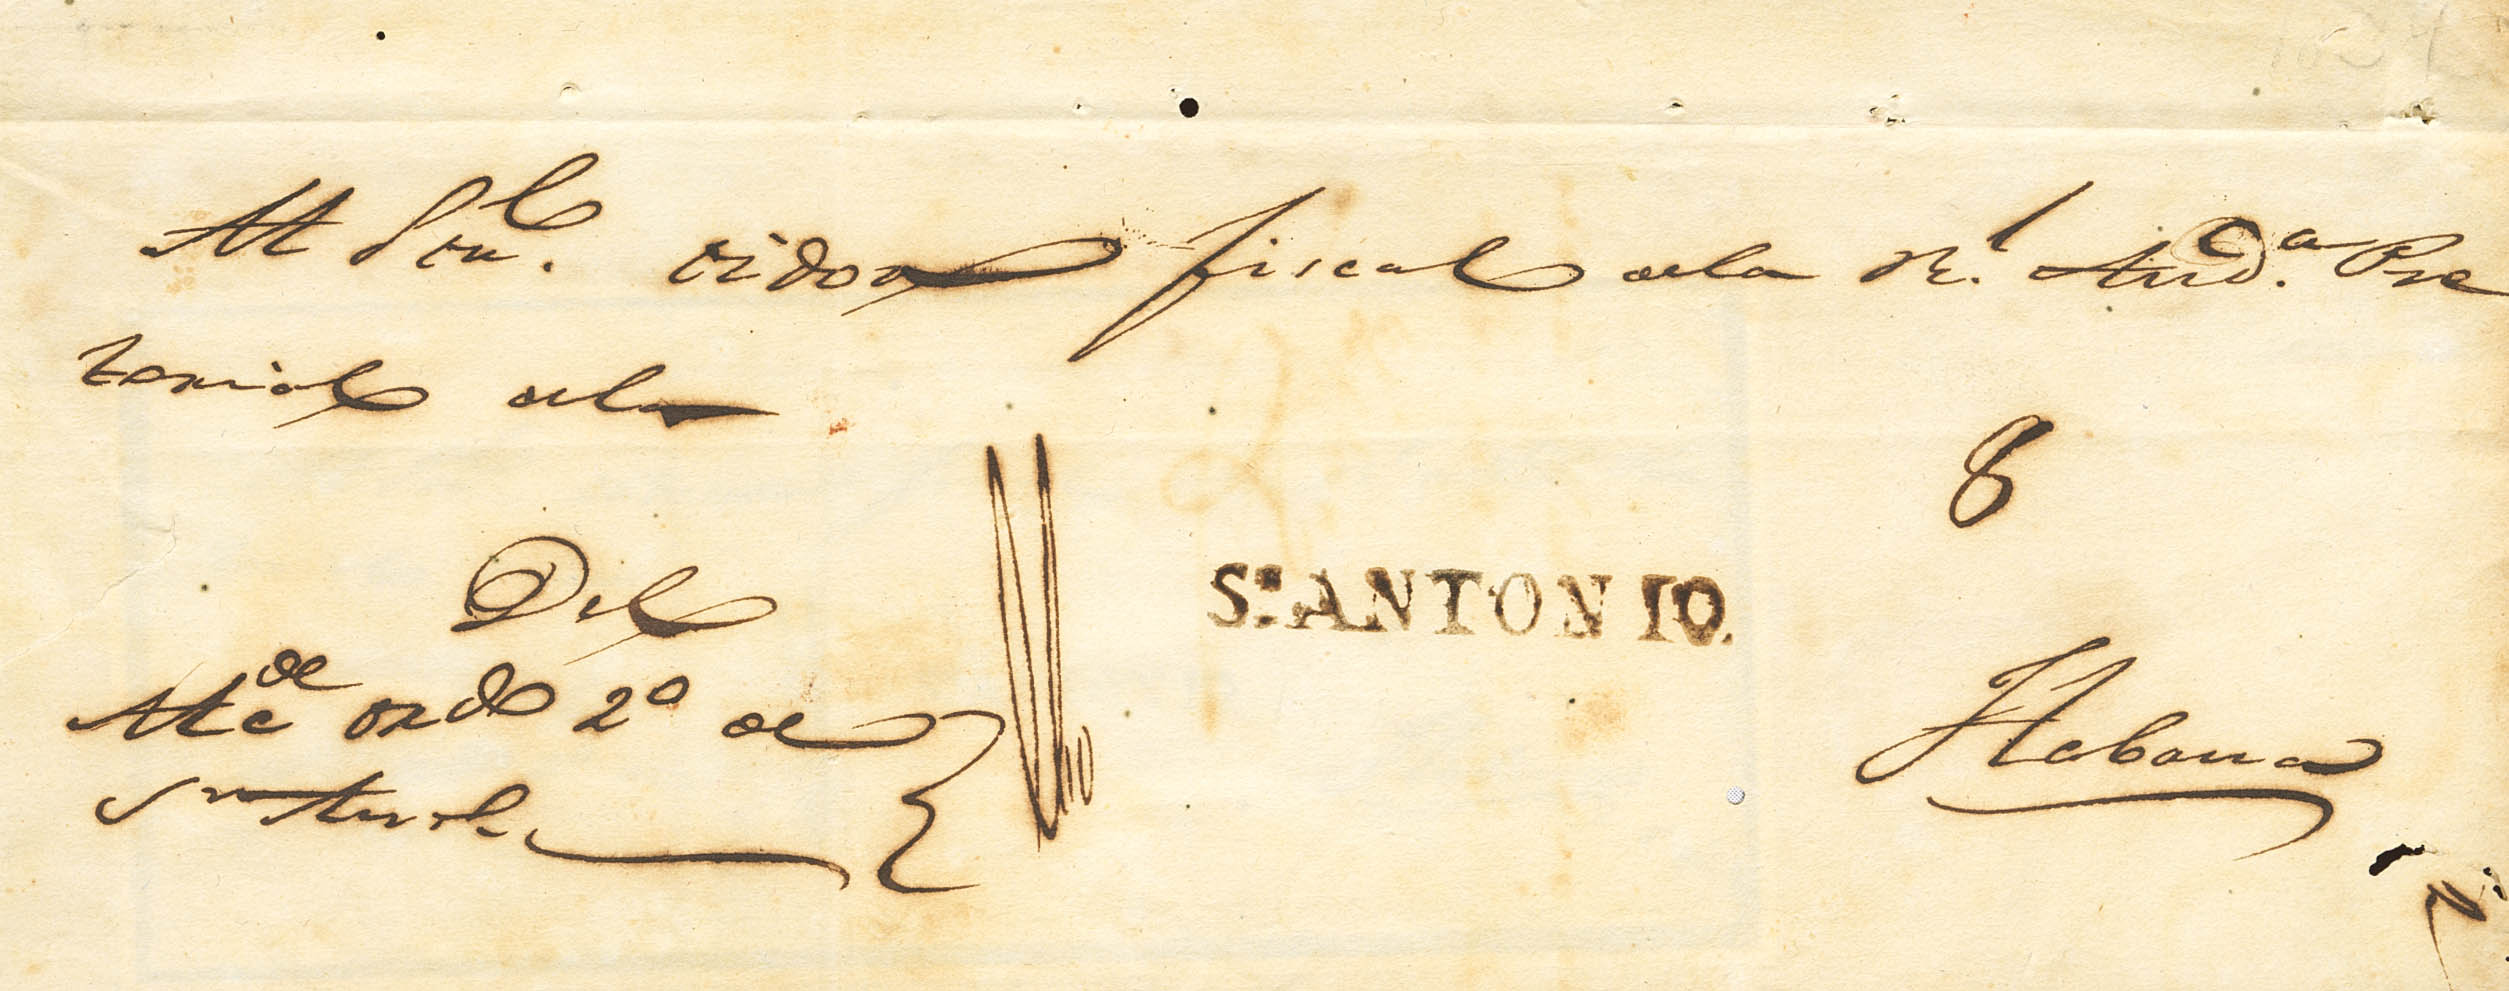 Al Sor. oidor fiscal dela Rl. Audª. Pre
torial dela
8
Del
Alcde ordº 2º de
Sn Antº.
Sn. ANTONIO.
Habana